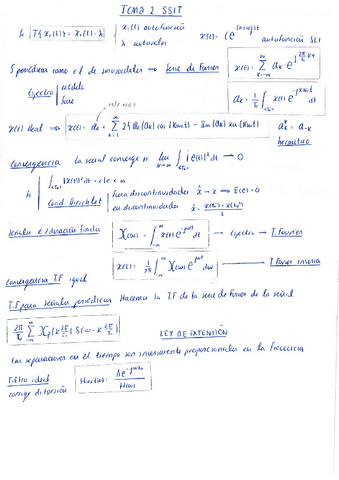 TEMA 2 SSIT
Si T{x₁(t)} = x₁(t)·λ | x₁(t) autofunción
λ autovalor
x(t) = C e^{jωt} autofunción SLI
S periódicas como c.l. de sinusoidales → Serie de Fourier
x(t) = Σ_{k=-∞}^{∞} a_k e^{j 2π/T₀ k t}
Espectro | módulo
fase
a_k = 1/T₀ ∫_{<T₀>} x(t) e^{-jkω₀t} dt
x(t) real ⟹ x(t) = a₀ + Σ_{k=1}^{∞} 2{Re(a_k) cos(kω₀t) - Im(a_k) sen(kω₀t)}
a_k* = a_{-k}
hermítico
Convergencia la serie converge si lim_{N→∞} ∫_{<T₀>} |e(t)|² dt → 0
Si | ∫_{<T₀>} |x(t)|² dt = cte < ∞
Cond Dirichlet | Fuera discontinuidades x̂ → x ⟹ E(t) = 0
en discontinuidades
Señales duración finita
X(ω) = ∫_{-∞}^{∞} x(t) e^{-jωt} dt → Espectro → T. Fourier
x(t) = 1/2π ∫_{-∞}^{∞} X(ω) e^{jωt} dω → T. Fourier inversa
Convergencia T.F igual
T.F para señales periódicas Hacemos la TF de la serie de Fourier de la señal
LEY DE EXTENSIÓN
las separaciones en el tiempo son inversamente proporcionales en la frecuencia
Filtro ideal
corrige distorsión